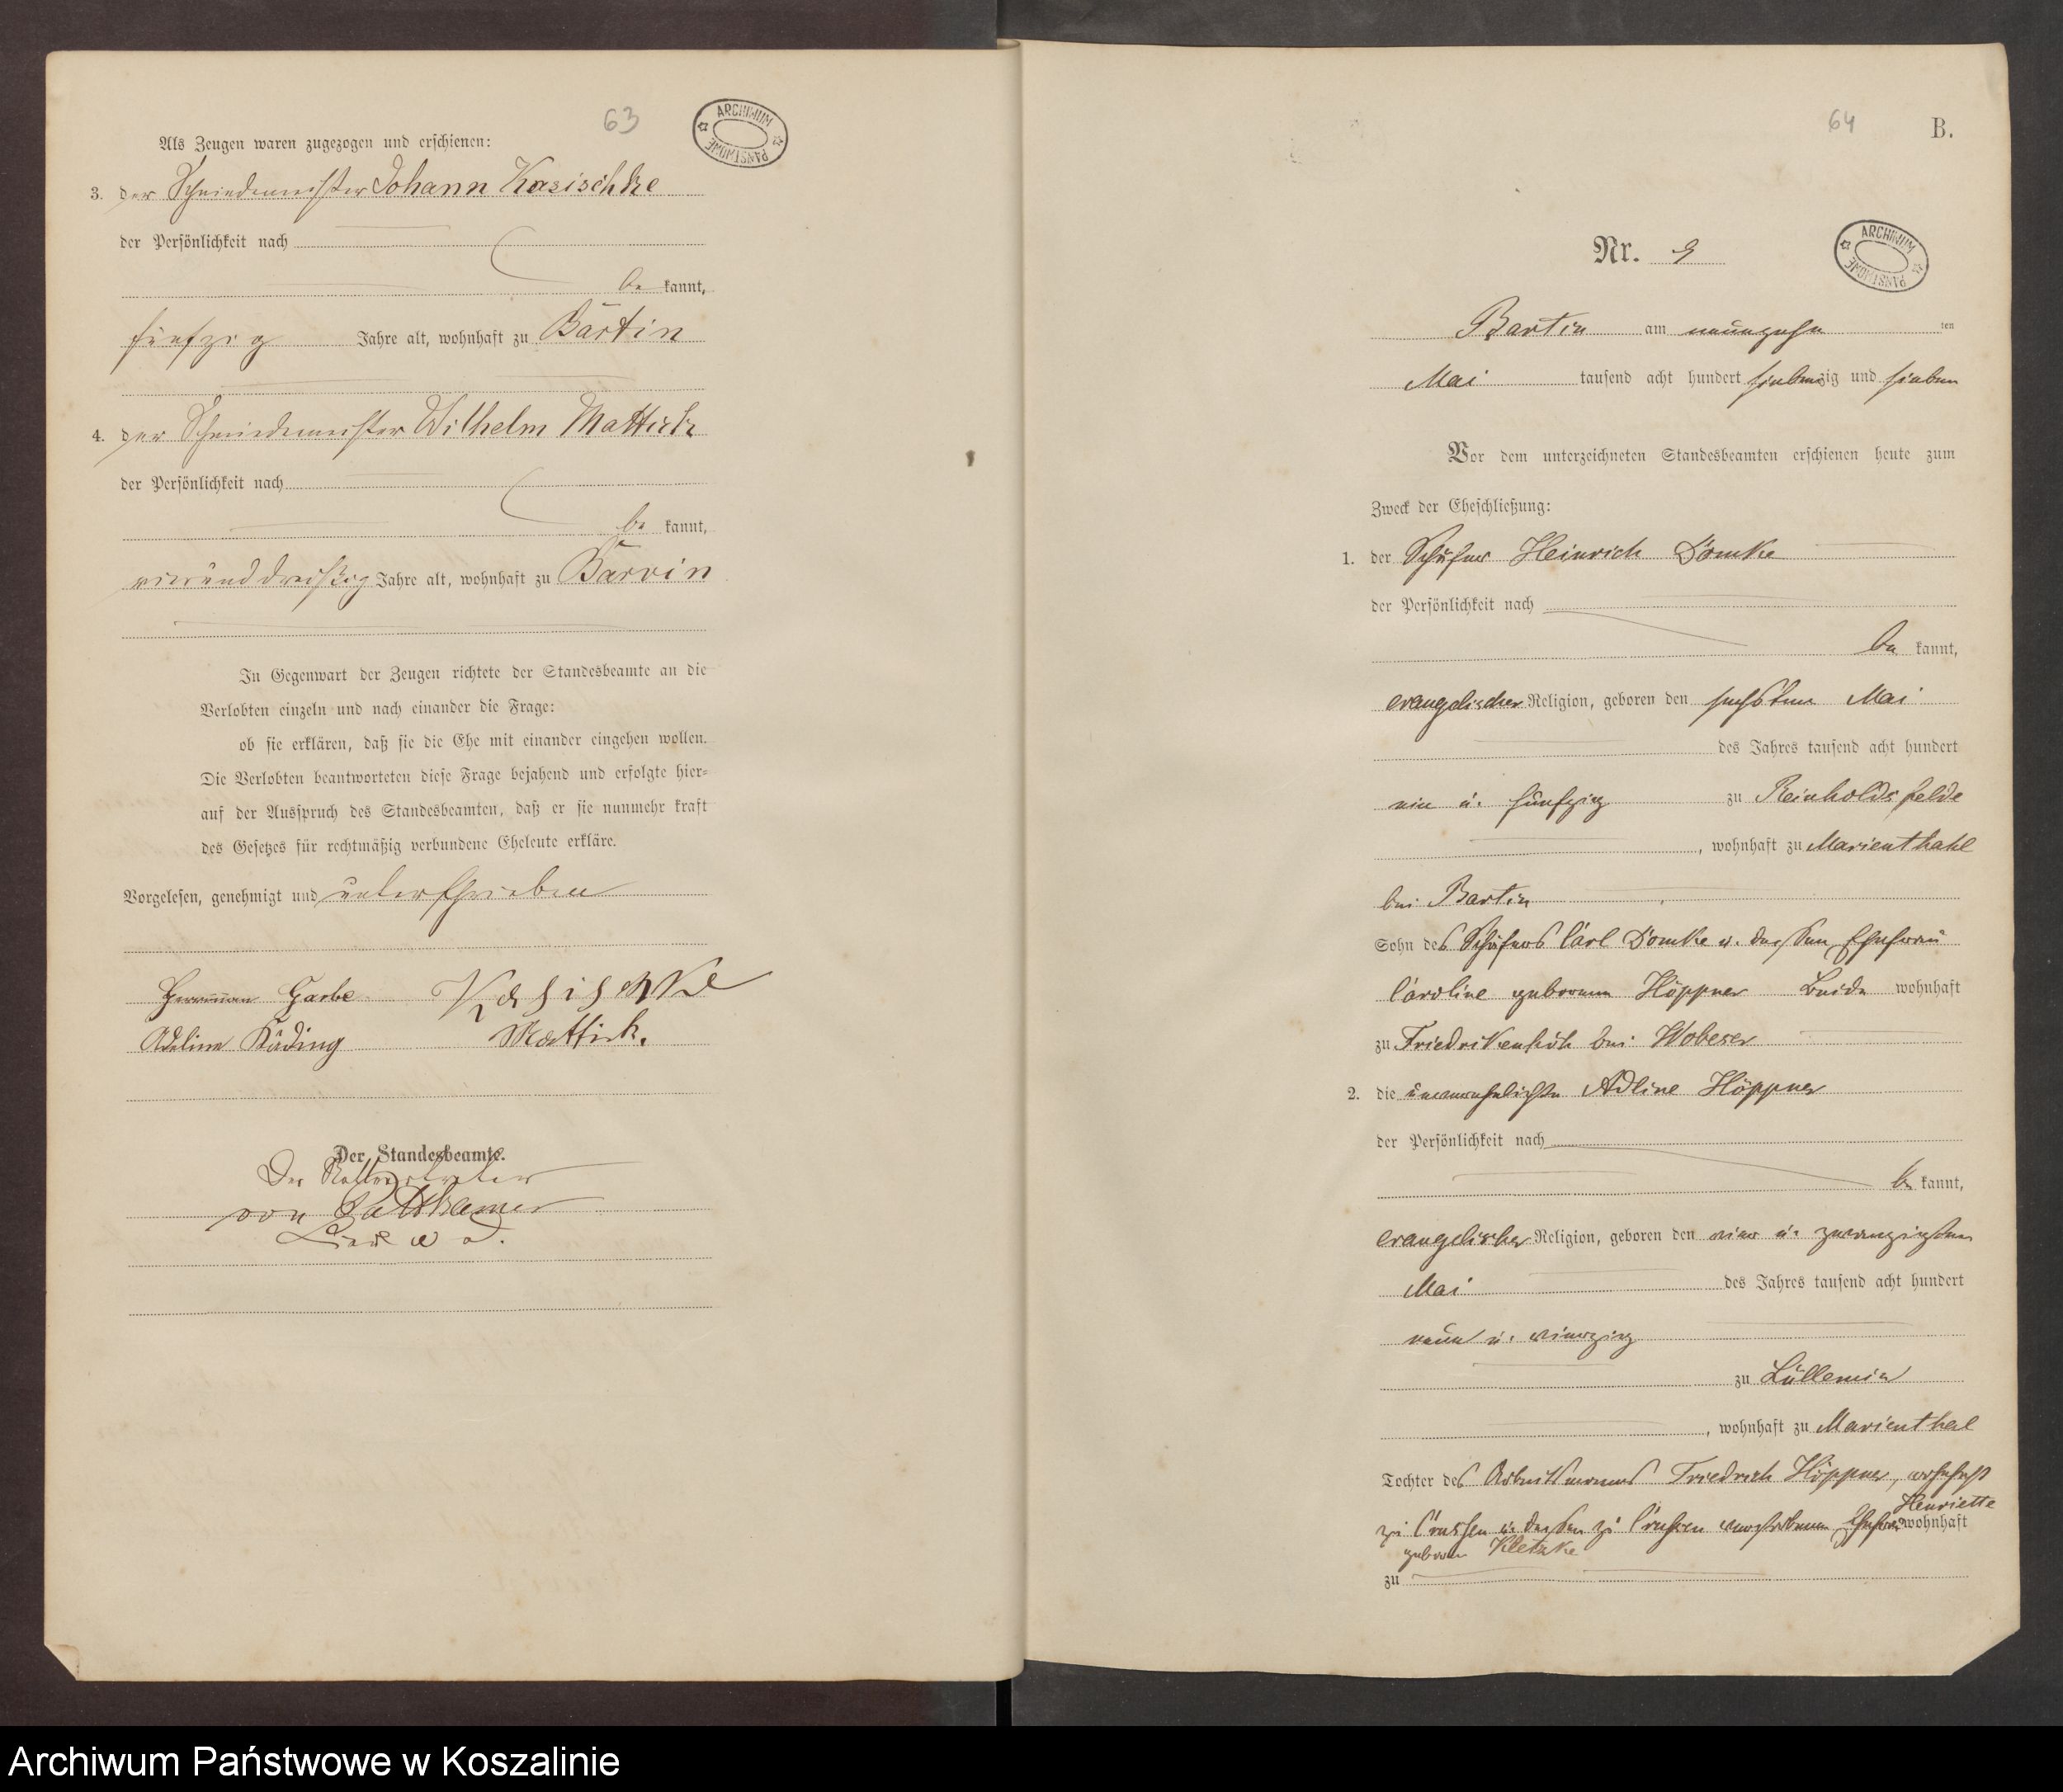 63
ARCHIWUM PAŃSTWOWE
Als Zeugen waren zugezogen und erschienen:
3. der Schmiedemeister Johann Kasischke
der Persönlichkeit nach
be kannt,
fünfzig Jahre alt, wohnhaft zu Bartin
4. der Schmiedemeister Wilhelm Mattick
der Persönlichkeit nach
be kannt,
vierunddreißig Jahre alt, wohnhaft zu Barvin
In Gegenwart der Zeugen richtete der Standesbeamte an die
Verlobten einzeln und nach einander die Frage:
ob sie erklären, daß sie die Ehe mit einander eingehen wollen.
Die Verlobten beantworteten diese Frage bejahend und erfolgte hier-
auf der Ausspruch des Standesbeamten, daß er sie nunmehr kraft
des Gesetzes für rechtmäßig verbundene Eheleute erkläre.
Vorgelesen, genehmigt und unterschrieben
Herrmann Garbe Kasischke
Adeline Käding Mattick.
Der Standesbeamte.
von Puttkamer
64
B.
ARCHIWUM PAŃSTWOWE
Nr. 9
Bartin am neunzehn ten
Mai tausend acht hundert siebenzig und sieben
Vor dem unterzeichneten Standesbeamten erschienen heute zum
Zweck der Eheschließung:
1. der Schäfer Heinrich Domke
der Persönlichkeit nach
be kannt,
evangelischer Religion, geboren den sechsten Mai
des Jahres tausend acht hundert
ein u. fünfzig zu Reinholdsfelde
, wohnhaft zu Marienthal
bei Bartin
Sohn des Schäfers Carl Domke u. dessen Ehefrau
Caroline geborenen Höppner Beide wohnhaft
zu Friedrikenhöh bei Wobeser
2. die unverehelichte Adline Höppner
der Persönlichkeit nach
be kannt,
evangelischer Religion, geboren den vier u. zwanzigsten
Mai des Jahres tausend acht hundert
neun u. vierzig
zu Lüllemin
, wohnhaft zu Marienthal
Tochter des Arbeitsmannes Friedrich Höppner, wohnhaft
Henriette
zu Crussen u. dessen zu Crussen verstorbenen Ehefrau wohnhaft
geboren Kletzke
zu
Archiwum Państwowe w Koszalinie